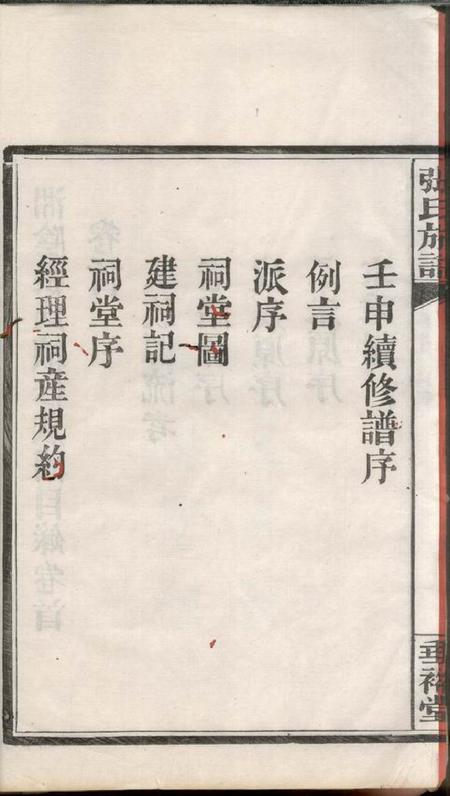 張氏族譜
壬申續修譜序
例言
派序
祠堂圖
建祠記
祠堂序
經理祠產規約
垂裕堂